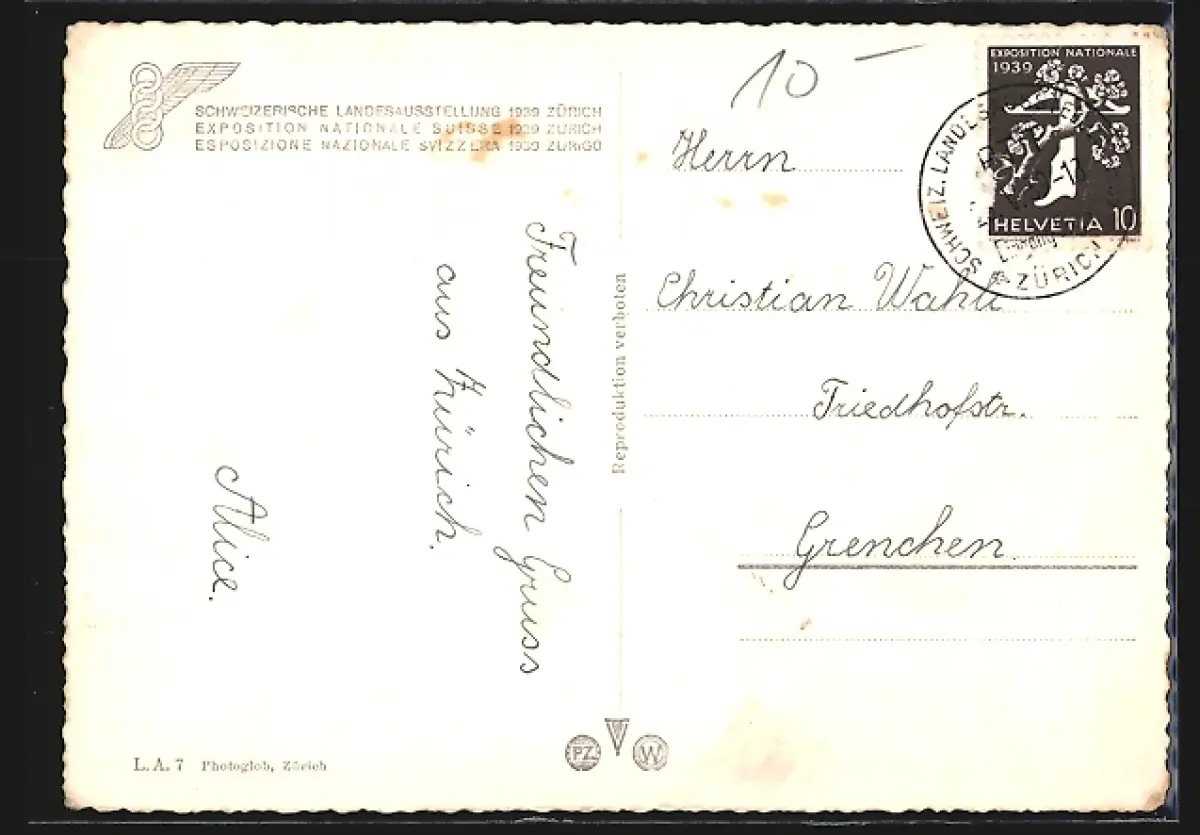 SCHWEIZERISCHE LANDESAUSSTELLUNG 1939 ZÜRICH
EXPOSITION NATIONALE SUISSE 1939 ZURICH
ESPOSIZIONE NAZIONALE SVIZZERA 1939 ZURIGO
10 –
EXPOSITION NATIONALE
1939
HELVETIA 10
SCHWEIZ. LANDES
ZÜRICH
Herrn
Christian
Friedhofstr.
Grenchen
Freundlichen Gruss
aus Zürich.
Alice.
Reproduktion verboten
L. A. 7 Photoglob, Zürich
PZ
W